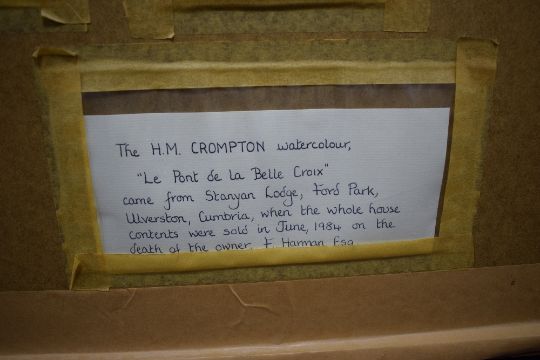 The H.M. CROMPTON watercolour,
"Le Pont de la Belle Croix"
came from Stanyan Lodge, Ford Park,
Ulverston, Cumbria, when the whole house
contents were sold in June, 1984 on the
death of the owner F Harman Esq